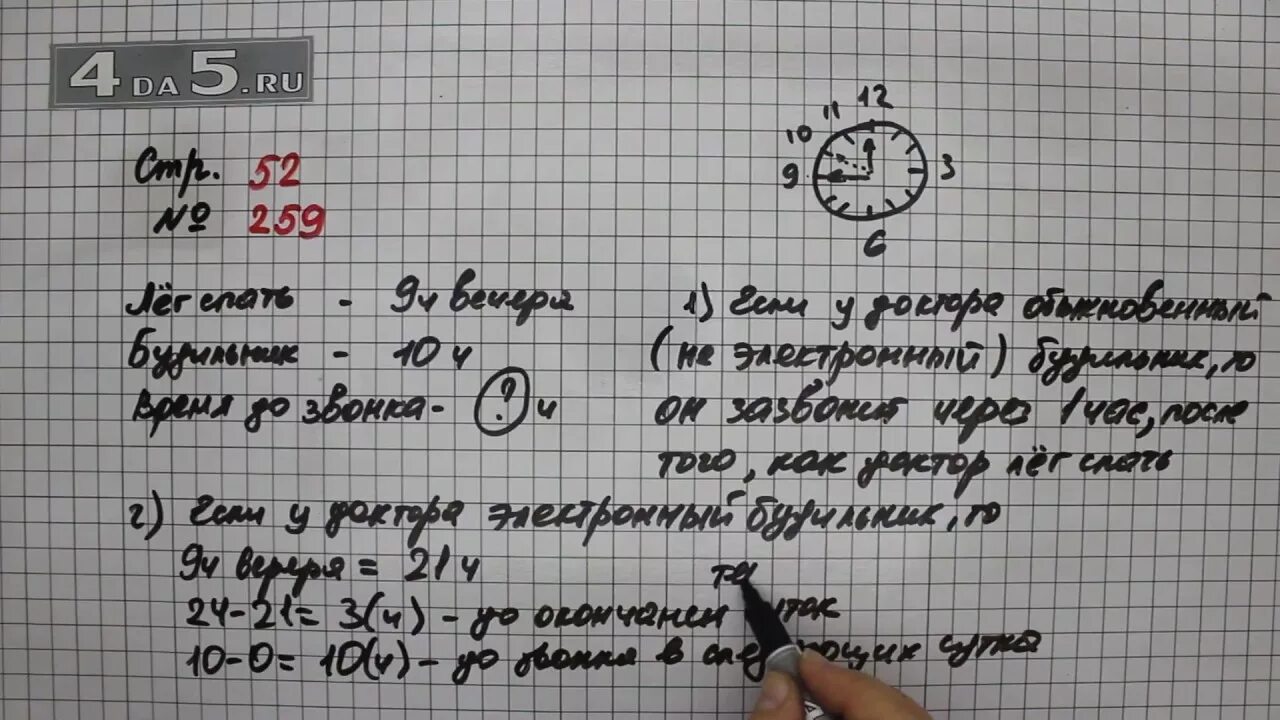 4DA5.RU
Стр. 52
№ 259
12
11
10
9
3
6
Лёг спать - 9ч вечера
Будильник - 10 ч
Время до звонка - ? ч
1) Если у доктора обыкновенный
(не электронный) будильник, то
он зазвонит через 1 час, после
того, как доктор лёг спать
2) Если у доктора электронный будильник, то
9ч вечера = 21 ч
24-21= 3(ч) - до окончания
10-0= 10(ч) - до звонка в